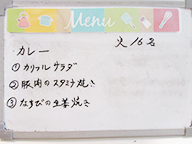 Menu
火 16名
カレー
① カリフルサラダ
② 豚肉のスタミナ焼き
③ なすびの生姜焼き